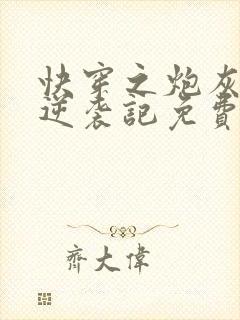 快穿之炮灰
逆袭記免費
齊大偉